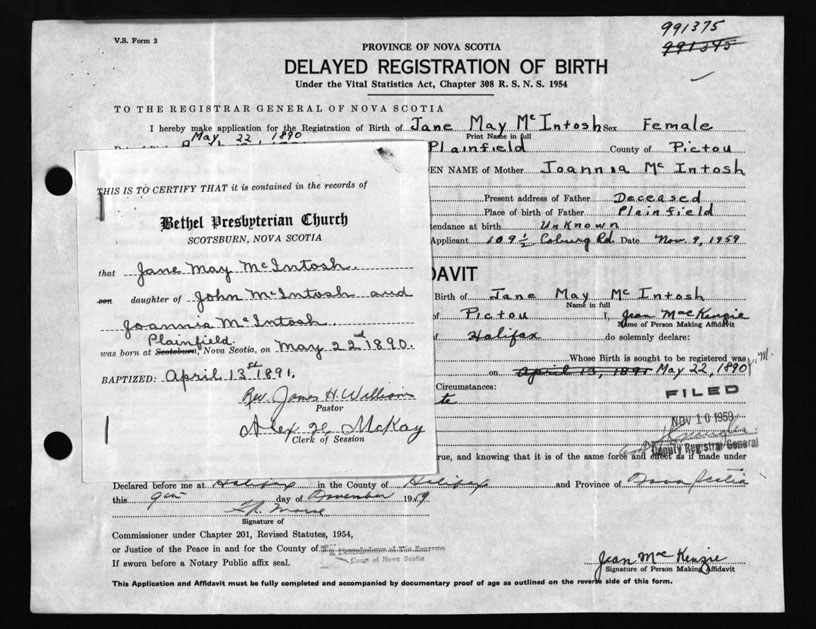 991375
991345
V.S. Form 3
PROVINCE OF NOVA SCOTIA
DELAYED REGISTRATION OF BIRTH
Under the Vital Statistics Act, Chapter 308 R. S. N. S. 1954
TO THE REGISTRAR GENERAL OF NOVA SCOTIA
I hereby make application for the Registration of Birth of Jane May McIntosh Sex Female
Print Name in full
May 22 1890
Plainfield County of Pictou
EN NAME of Mother Joannia Mc Intosh
Present address of Father Deceased
Place of birth of Father Plainfield
tendance at birth Unknown
Applicant 109½ Coburg Rd. Date Nov. 9, 1959
DAVIT
Birth of Jane May Mc Intosh
Name in full
of Pictou I, Jean MacKenzie
Name of Person Making Affidavit
of Halifax do solemnly declare:
Whose Birth is sought to be registered was
on April 13, 1891 May 22, 1890
Circumstances:
FILED
NOV 10 1959
Deputy Registrar General
rue, and knowing that it is of the same force and effect as if made under
THIS IS TO CERTIFY THAT it is contained in the records of
Bethel Presbyterian Church
SCOTSBURN, NOVA SCOTIA
that Jane May McIntosh
son daughter of John McIntosh and
Joannia McIntosh
Plainfield
was born at Scotsburn, Nova Scotia, on May 22nd 1890.
BAPTIZED: April 13st 1891.
Rev. James H. Williams
Pastor
Alex H. McKay
Clerk of Session
Declared before me at Halifax in the County of Halifax and Province of Nova Scotia
this 9th day of November 1959
Signature of
Commissioner under Chapter 201, Revised Statutes, 1954,
or Justice of the Peace in and for the County of
Court of Nova Scotia
If sworn before a Notary Public affix seal.
Jean MacKenzie
Signature of Person Making Affidavit
This Application and Affidavit must be fully completed and accompanied by documentary proof of age as outlined on the reverse side of this form.